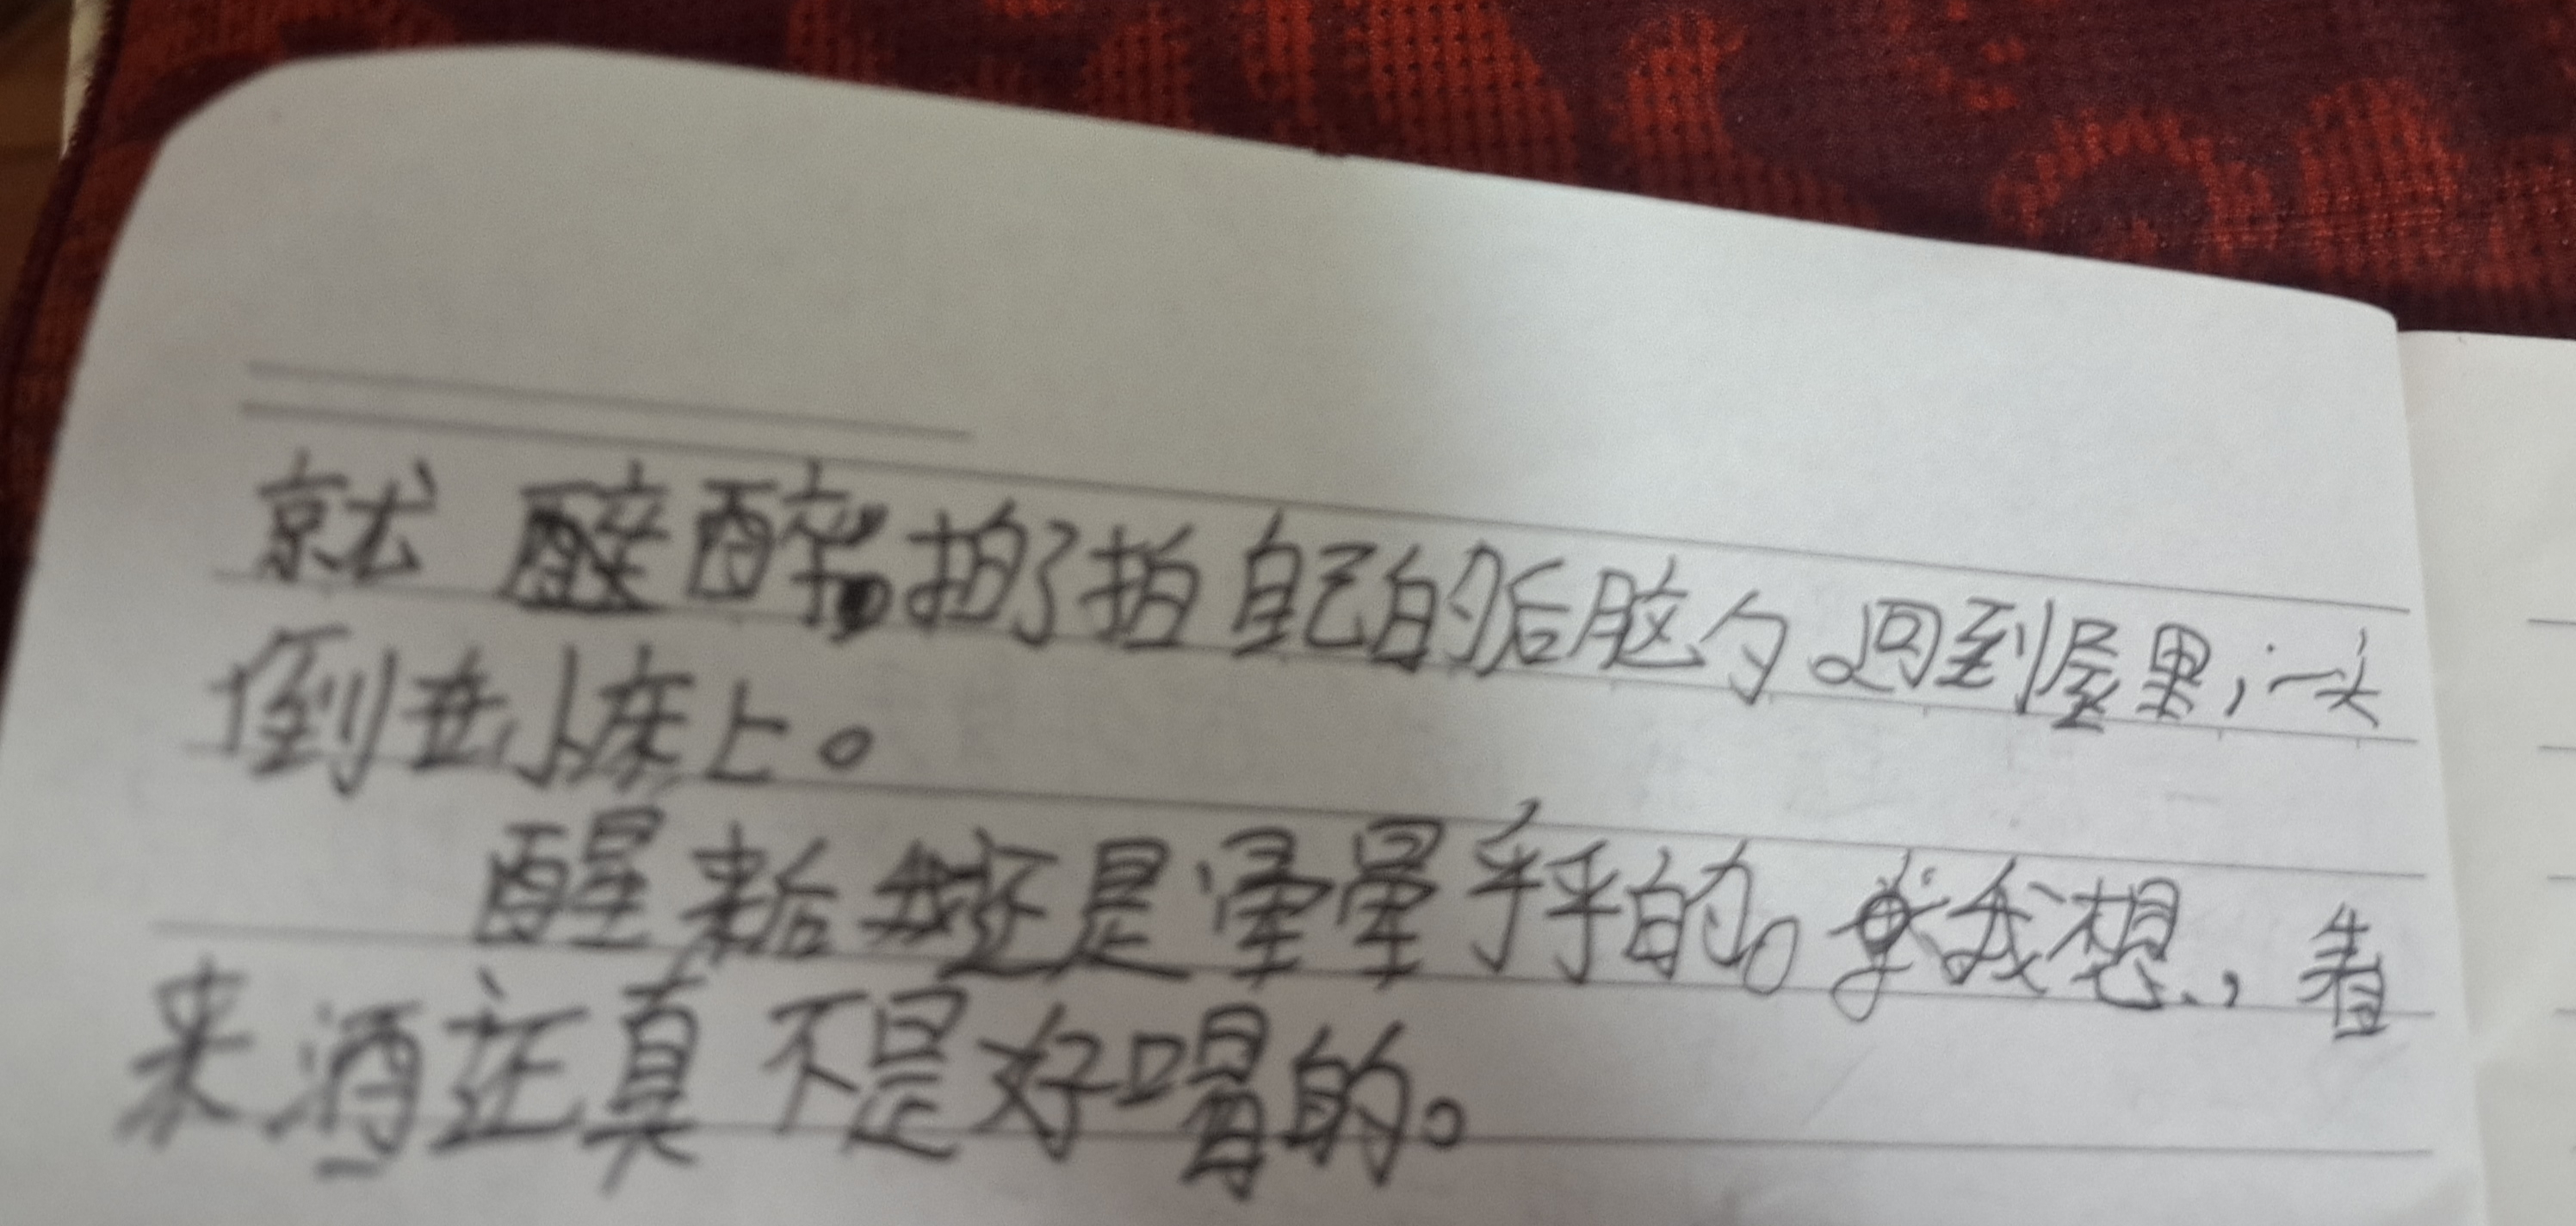 就醉拍了拍自己的后脑勺。回到屋里，一头
倒在床上。
醒来后我还是晕晕乎乎的。我想，看
来酒还真不是好喝的。